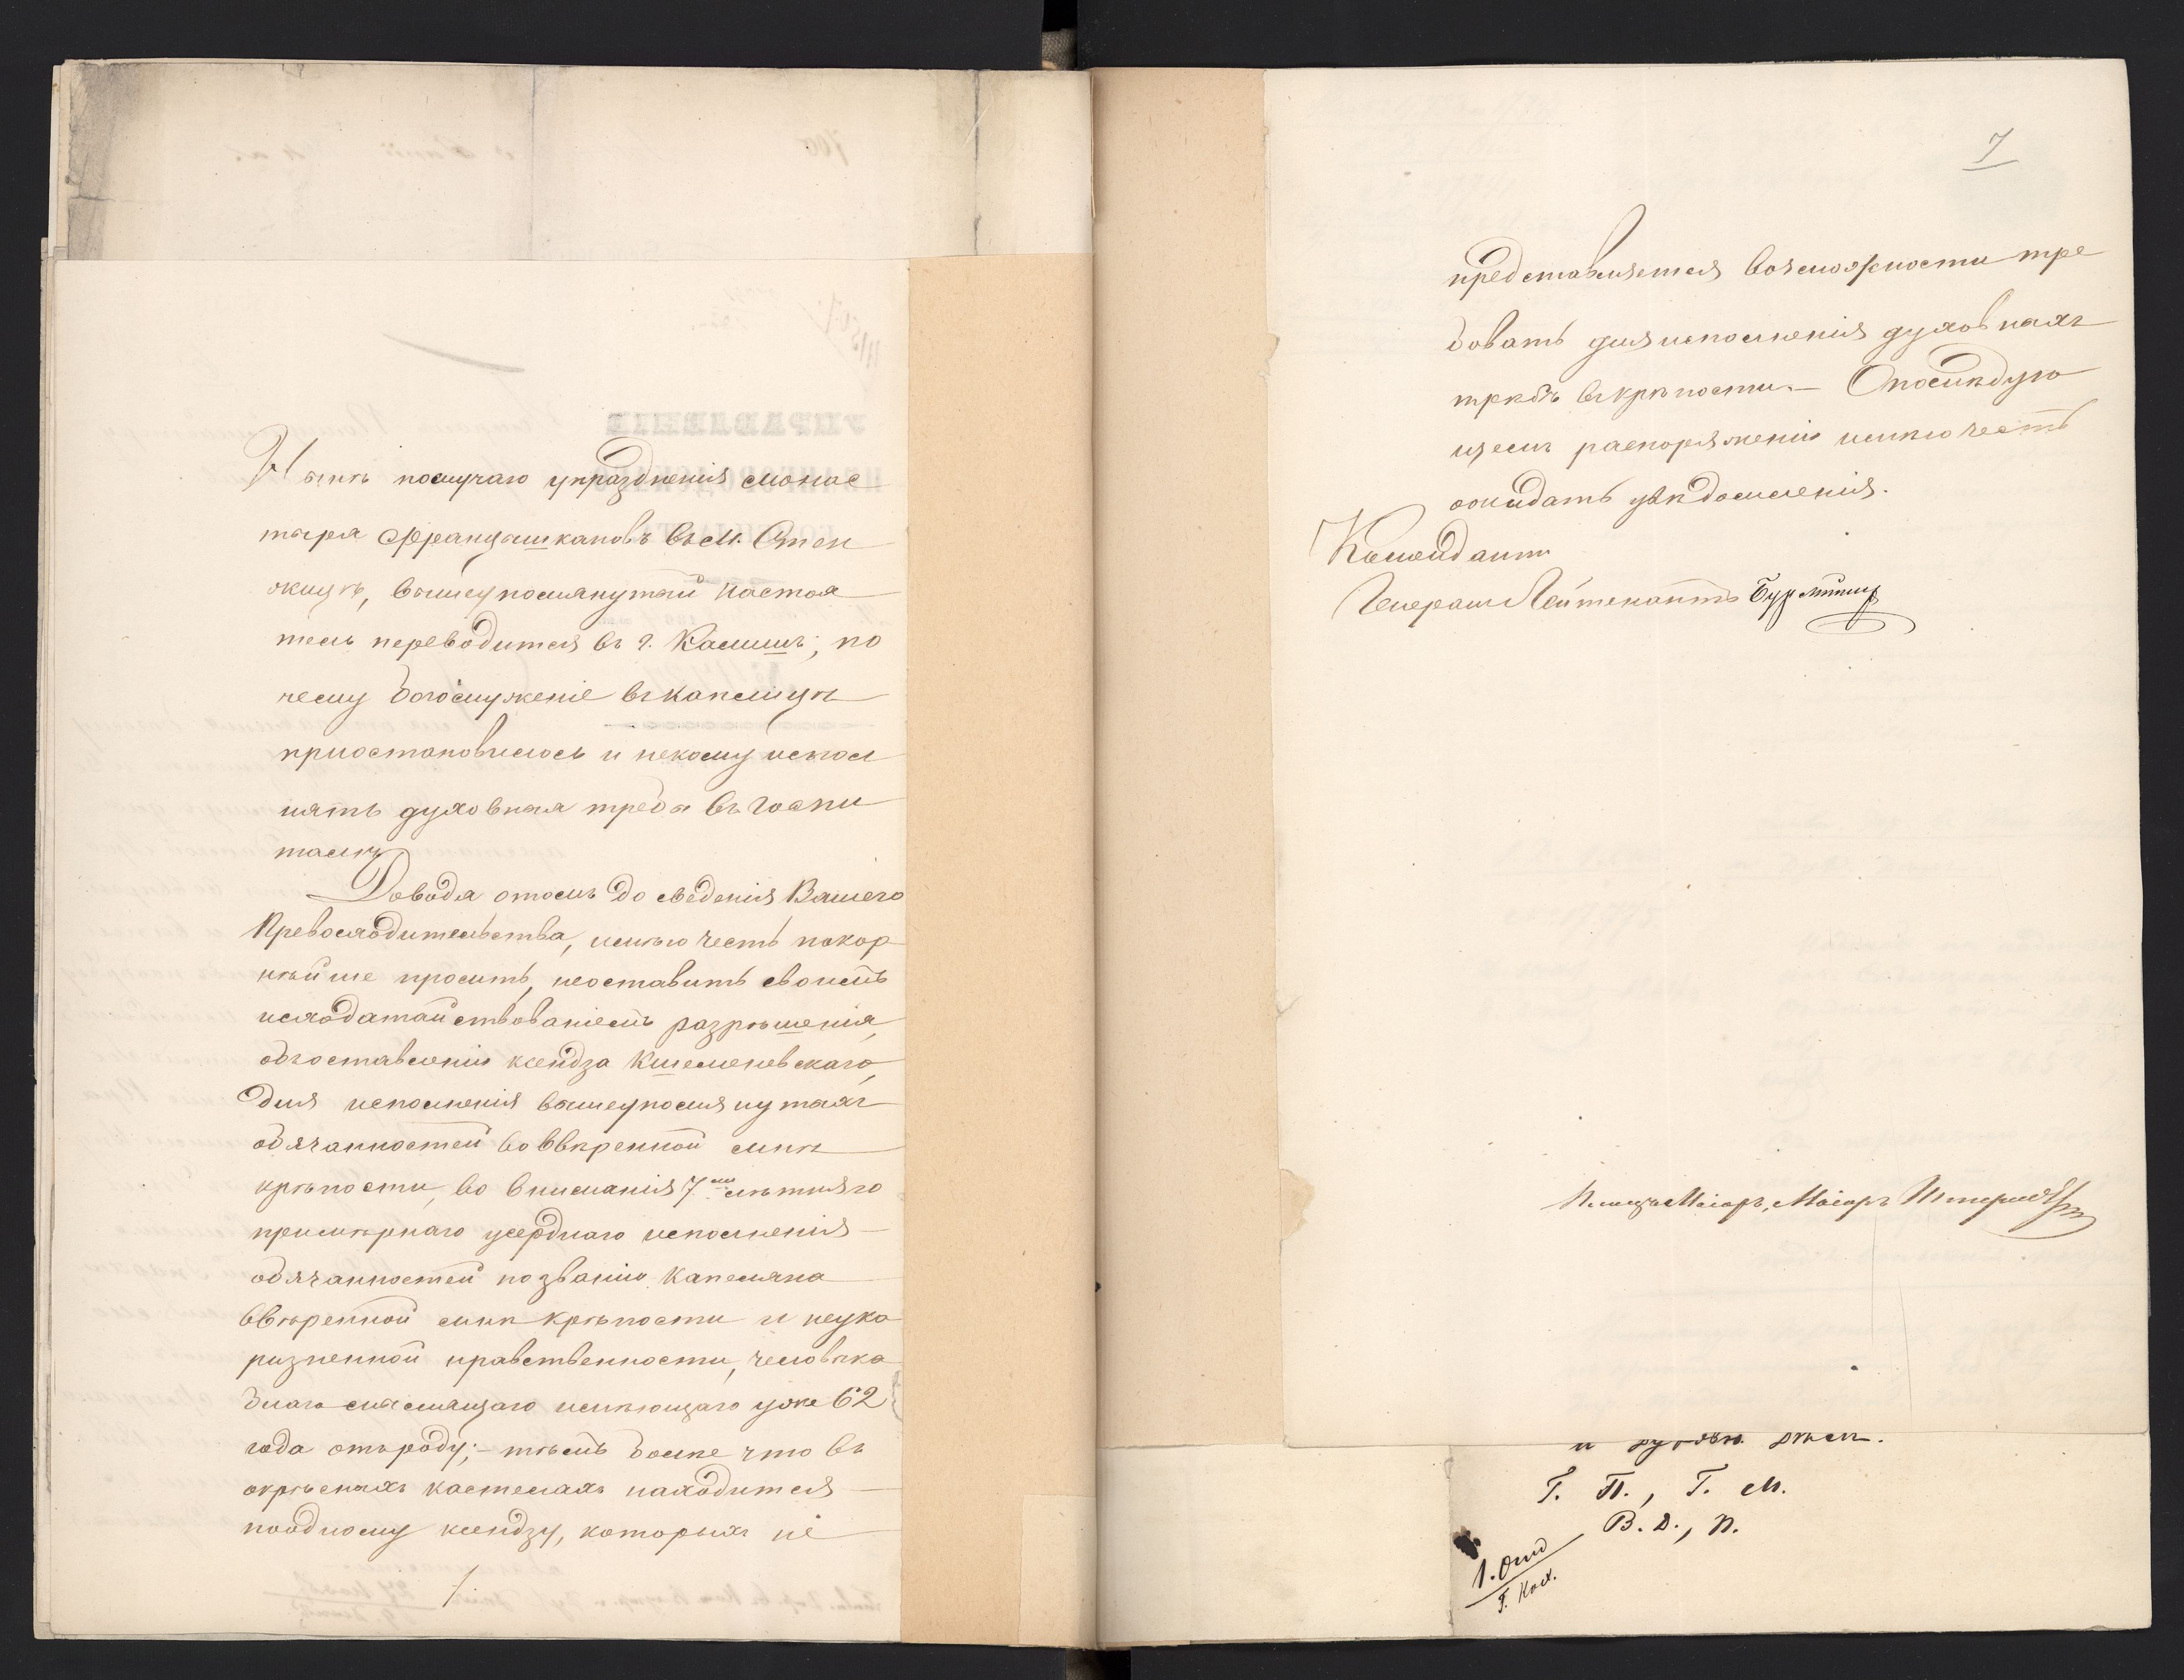 Нынѣ послучаю упраздненія монас
тыря Францышкановъ въ м. Стен
жицѣ, вышеупомянутый настоя
тель переводится въ г. Калишъ; по
чему богослуженіе въ каплицѣ
приостановилось и некому испол
нять духовныя требы въ госпи
талѣ.
Доводя отомъ до сведенія Вашего
Превосходительства, имѣю честь покор
нѣйше просить, неоставить своимъ
исходатайствованіемъ разрѣшенія,
объоставленіи ксендза Кшеменевскаго,
для исполненія вышеупомянутыхъ
обязанностей во ввѣренной мнѣ
крѣпости, во вниманія 7ми лѣтняго
примѣрнаго усерднаго исполненія
обязанностей по званію капеляна
ввѣренной мнѣ крѣпости и неуко
ризненной нравственности, человѣка
благомыслящаго имѣющаго уже 62
года отъроду; - тѣмъ болѣе что въ
окрѣсныхъ костелахъ находится
поодному ксендзу, которыхъ не
7
представляется возможности тре
бовать для исполненія духовныхъ
требъ въ крѣпости. — Опослѣдую
щемъ распоряженіи имѣю честь
ожидать увѣдомленія.
Комендантъ
Генералъ Лейтенантъ
Плацъ Маіоръ, Маіоръ
Г. П., Г. М.
В. Д., П.
1. Отд